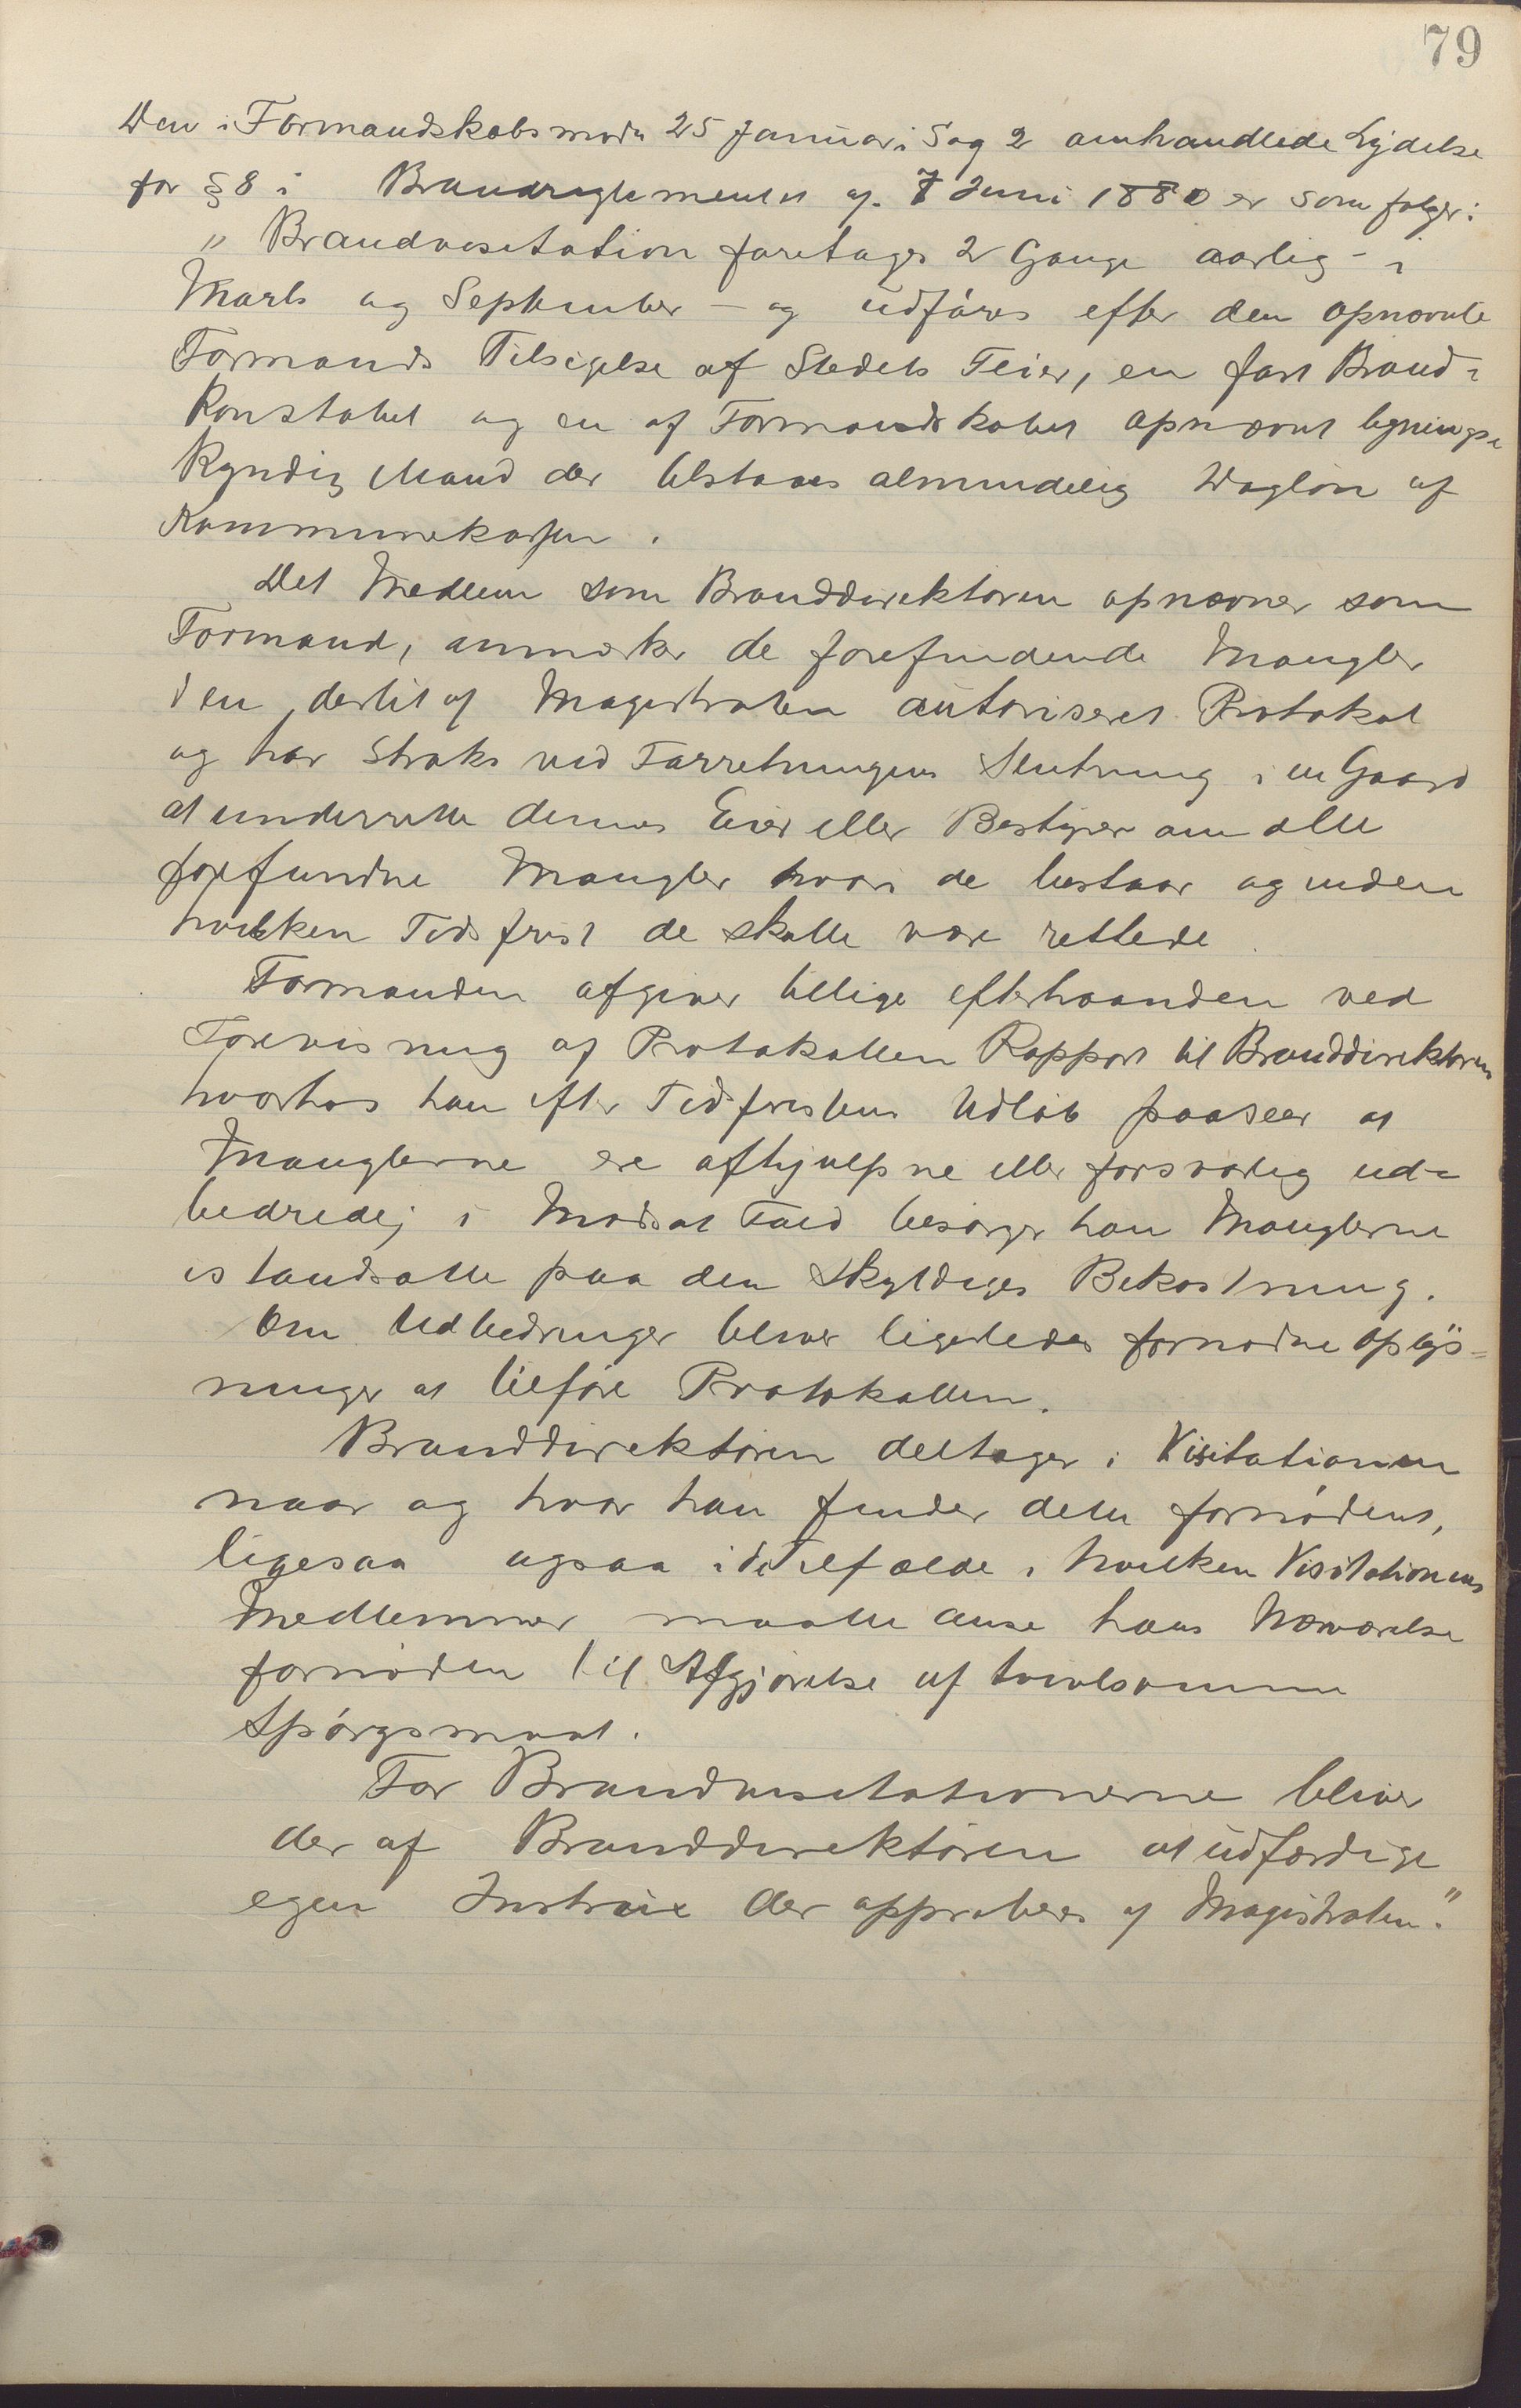 79
Den i Formandskabsmøde 25 Januar i Sag 2 omhandlede Lydelse
for § 8 i Brandreglementet af 7 Juni 1880 er som følger:
„ Brandvisitation foretages 2 Gange aarlig - i
Marts og September - og udføres efter den opnævnte
Formands Tilsigelse af Stedets Feier, en fast Brand-
Konstabel og en af Formandskabet opnævnt bygnings-
Kyndig Mand der tilstaaes almindelig Dagløn af
Kommunekassen.
Det Medlem som Branddirektøren opnævner som
Formand, anmærker de forefindende Mangler
i en dertil af Magistraten autoriseret Protokol
og har Straks ved Forretningens Slutning i en Gaard
at underrette dennes Eier eller Bestyrer om alle
forefundne Mangler hvori de bestaar og inden
hvilken Tidsfrist de skulle være rettede.
Formanden afgiver tillige efterhaanden ved
Forevisning af Protokollen Rapport til Branddirektøren
hvorhos han efter Tidsfristens Udløb paaseer at
Manglerne ere afhjulpne eller forsvarlig ud-
bedrede; i Modsat Fald besørger han Manglerne
istandsatte paa den Skyldiges Bekostning.
Om Udbedringer bliver ligeledes fornødne Oplys-
ninger at tilføre Protokollen.
Branddirektøren deltager i Visitationen
naar og hvor han finder dette fornødent,
ligesaa ogsaa i de Tilfælde i hvilken Visitationens
Medlemmer maatte anse hans Nærværelse
fornøden til Afgjørelse af tvivlsomme
Spørgsmaal.
For Brandvisitationerne bliver
der af Branddirektøren at udfærdige
egen Instrux der approberes af Magistraten."